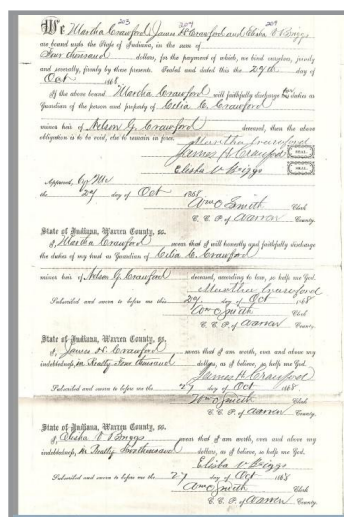 203 204 209
We Martha Crawford, James H. Crawford and Elisha V Briggs
are bound unto the State of Indiana, in the sum of
Four thousand dollars, for the payment of which, we bind ourselves, jointly
and severally, firmly by these presents. Sealed and dated this the 27th day of
Oct 1868
If the above bound Martha Crawford will faithfully discharge her duties as
Guardian of the person and property of Celia E. Crawford
minor heir of Nelson G. Crawford deceased, then the above
obligation is to be void, else to remain in force.
Martha Crawford
James H Crawford SEAL
Elisha V Briggs SEAL
Approved, by Me
the 27 day of Oct 1868
Wm O Smith Clerk
C. C. P. of Warren County.
State of Indiana, Warren County, ss.
I, Martha Crawford swear that I will honestly and faithfully discharge
the duties of my trust as Guardian of Celia E. Crawford
minor heir of Nelson G. Crawford deceased, according to law, so help me God.
Martha Crawford
Subscribed and sworn to before me this 27 day of Oct 1868
Wm O Smith Clerk
C. C. P. of Warren County.
State of Indiana, Warren County, ss.
I, James H. Crawford swear that I am worth, over and above my
indebtedness, in Realty Four thousand dollars, as I believe, so help me God.
James H Crawford
Subscribed and sworn to before me the 27 day of Oct 1868
Wm O Smith Clerk
C. C. P. of Warren County.
State of Indiana, Warren County, ss.
I, Elisha V Briggs swear that I am worth, over and above my
indebtedness, in Realty Four thousand dollars, as I believe, so help me God.
Elisha V Briggs
Subscribed and sworn to before me the 27 day of Oct 1868
Wm O Smith Clerk
C. C. P. of Warren County.